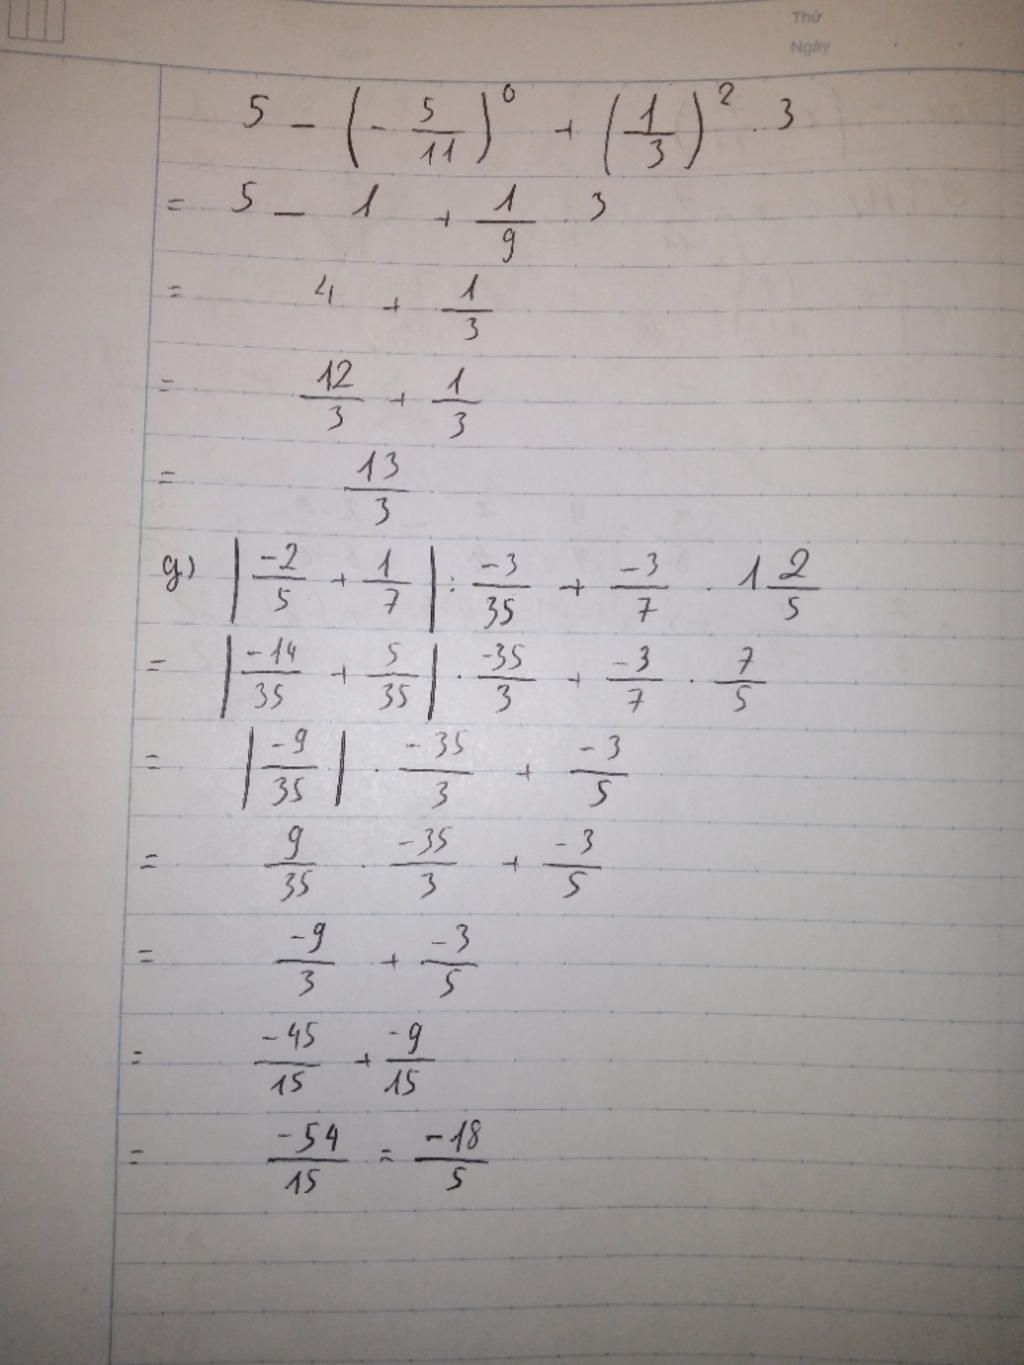 Thứ
Ngày
5 - (-5/11)^0 + (1/3)^2 . 3
= 5 - 1 + 1/9 . 3
= 4 + 1/3
= 12/3 + 1/3
= 13/3
g) |-2/5 + 1/7| : -3/35 + -3/7 . 1 2/5
= |-14/35 + 5/35| . -35/3 + -3/7 . 7/5
= |-9/35| . -35/3 + -3/5
= 9/35 . -35/3 + -3/5
= -9/3 + -3/5
= -45/15 + -9/15
= -54/15 = -18/5